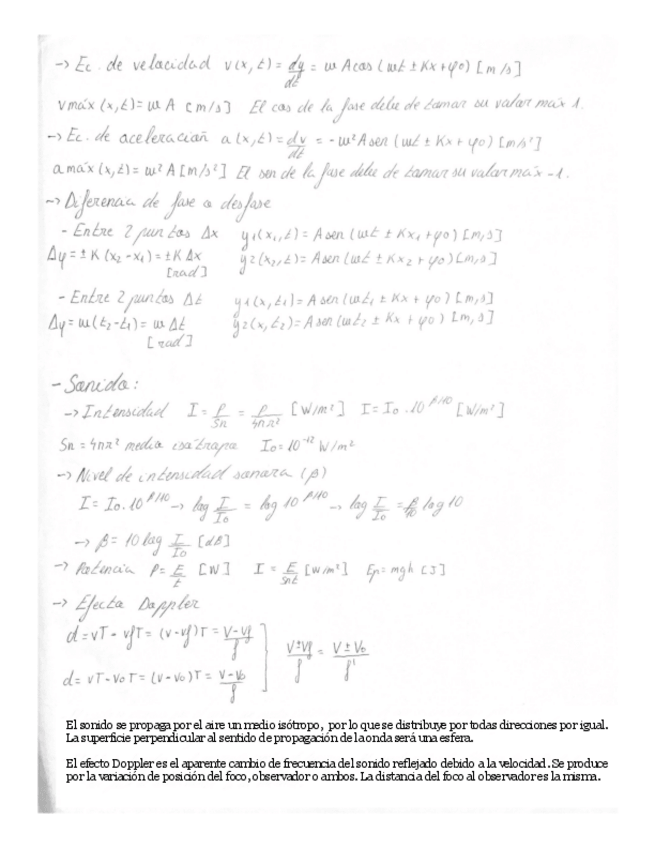 -> Ec. de velocidad v(x,t) = dy/dt = w A cos (wt ± Kx + φ0) [m/s]
v máx (x,t) = w A [m/s] El cos de la fase debe de tomar su valor máx 1.
-> Ec. de aceleración a(x,t) = dv/dt = -w² A sen (wt ± Kx + φ0) [m/s²]
a máx (x,t) = w² A [m/s²] El sen de la fase debe de tomar su valor máx -1.
-> Diferencia de fase o desfase
- Entre 2 puntos Δx y1(x1,t) = A sen (wt ± Kx1 + φ0) [m,s]
Δφ = ± K (x2-x1) = ± K Δx [rad] y2(x2,t) = A sen (wt ± Kx2 + φ0) [m,s]
- Entre 2 puntos Δt y1(x,t1) = A sen (wt1 ± Kx + φ0) [m,s]
Δφ = w(t2-t1) = w Δt [rad] y2(x,t2) = A sen (wt2 ± Kx + φ0) [m,s]
- Sonido:
-> Intensidad I = P/Sn = P/4πr² [W/m²] I = I0 · 10^β/10 [W/m²]
Sn = 4πr² medio isótropo I0 = 10^-12 W/m²
-> Nivel de intensidad sonora (β)
I = I0 · 10^β/10 -> log I/I0 = log 10^β/10 -> log I/I0 = β/10 log 10
-> β = 10 log I/I0 [dB]
-> Potencia P = E/t [W] I = E/Snt [W/m²] Ep = mgh [J]
-> Efecto Doppler
d = vT - vfT = (v-vf)T = V-Vf/f
V±Vf/f = V±Vo/f'
d = vT - voT = (v-vo)T = V-Vo/f
El sonido se propaga por el aire un medio isótropo, por lo que se distribuye por todas direcciones por igual.
La superficie perpendicular al sentido de propagación de la onda será una esfera.
El efecto Doppler es el aparente cambio de frecuencia del sonido reflejado debido a la velocidad. Se produce
por la variación de posición del foco, observador o ambos. La distancia del foco al observador es la misma.